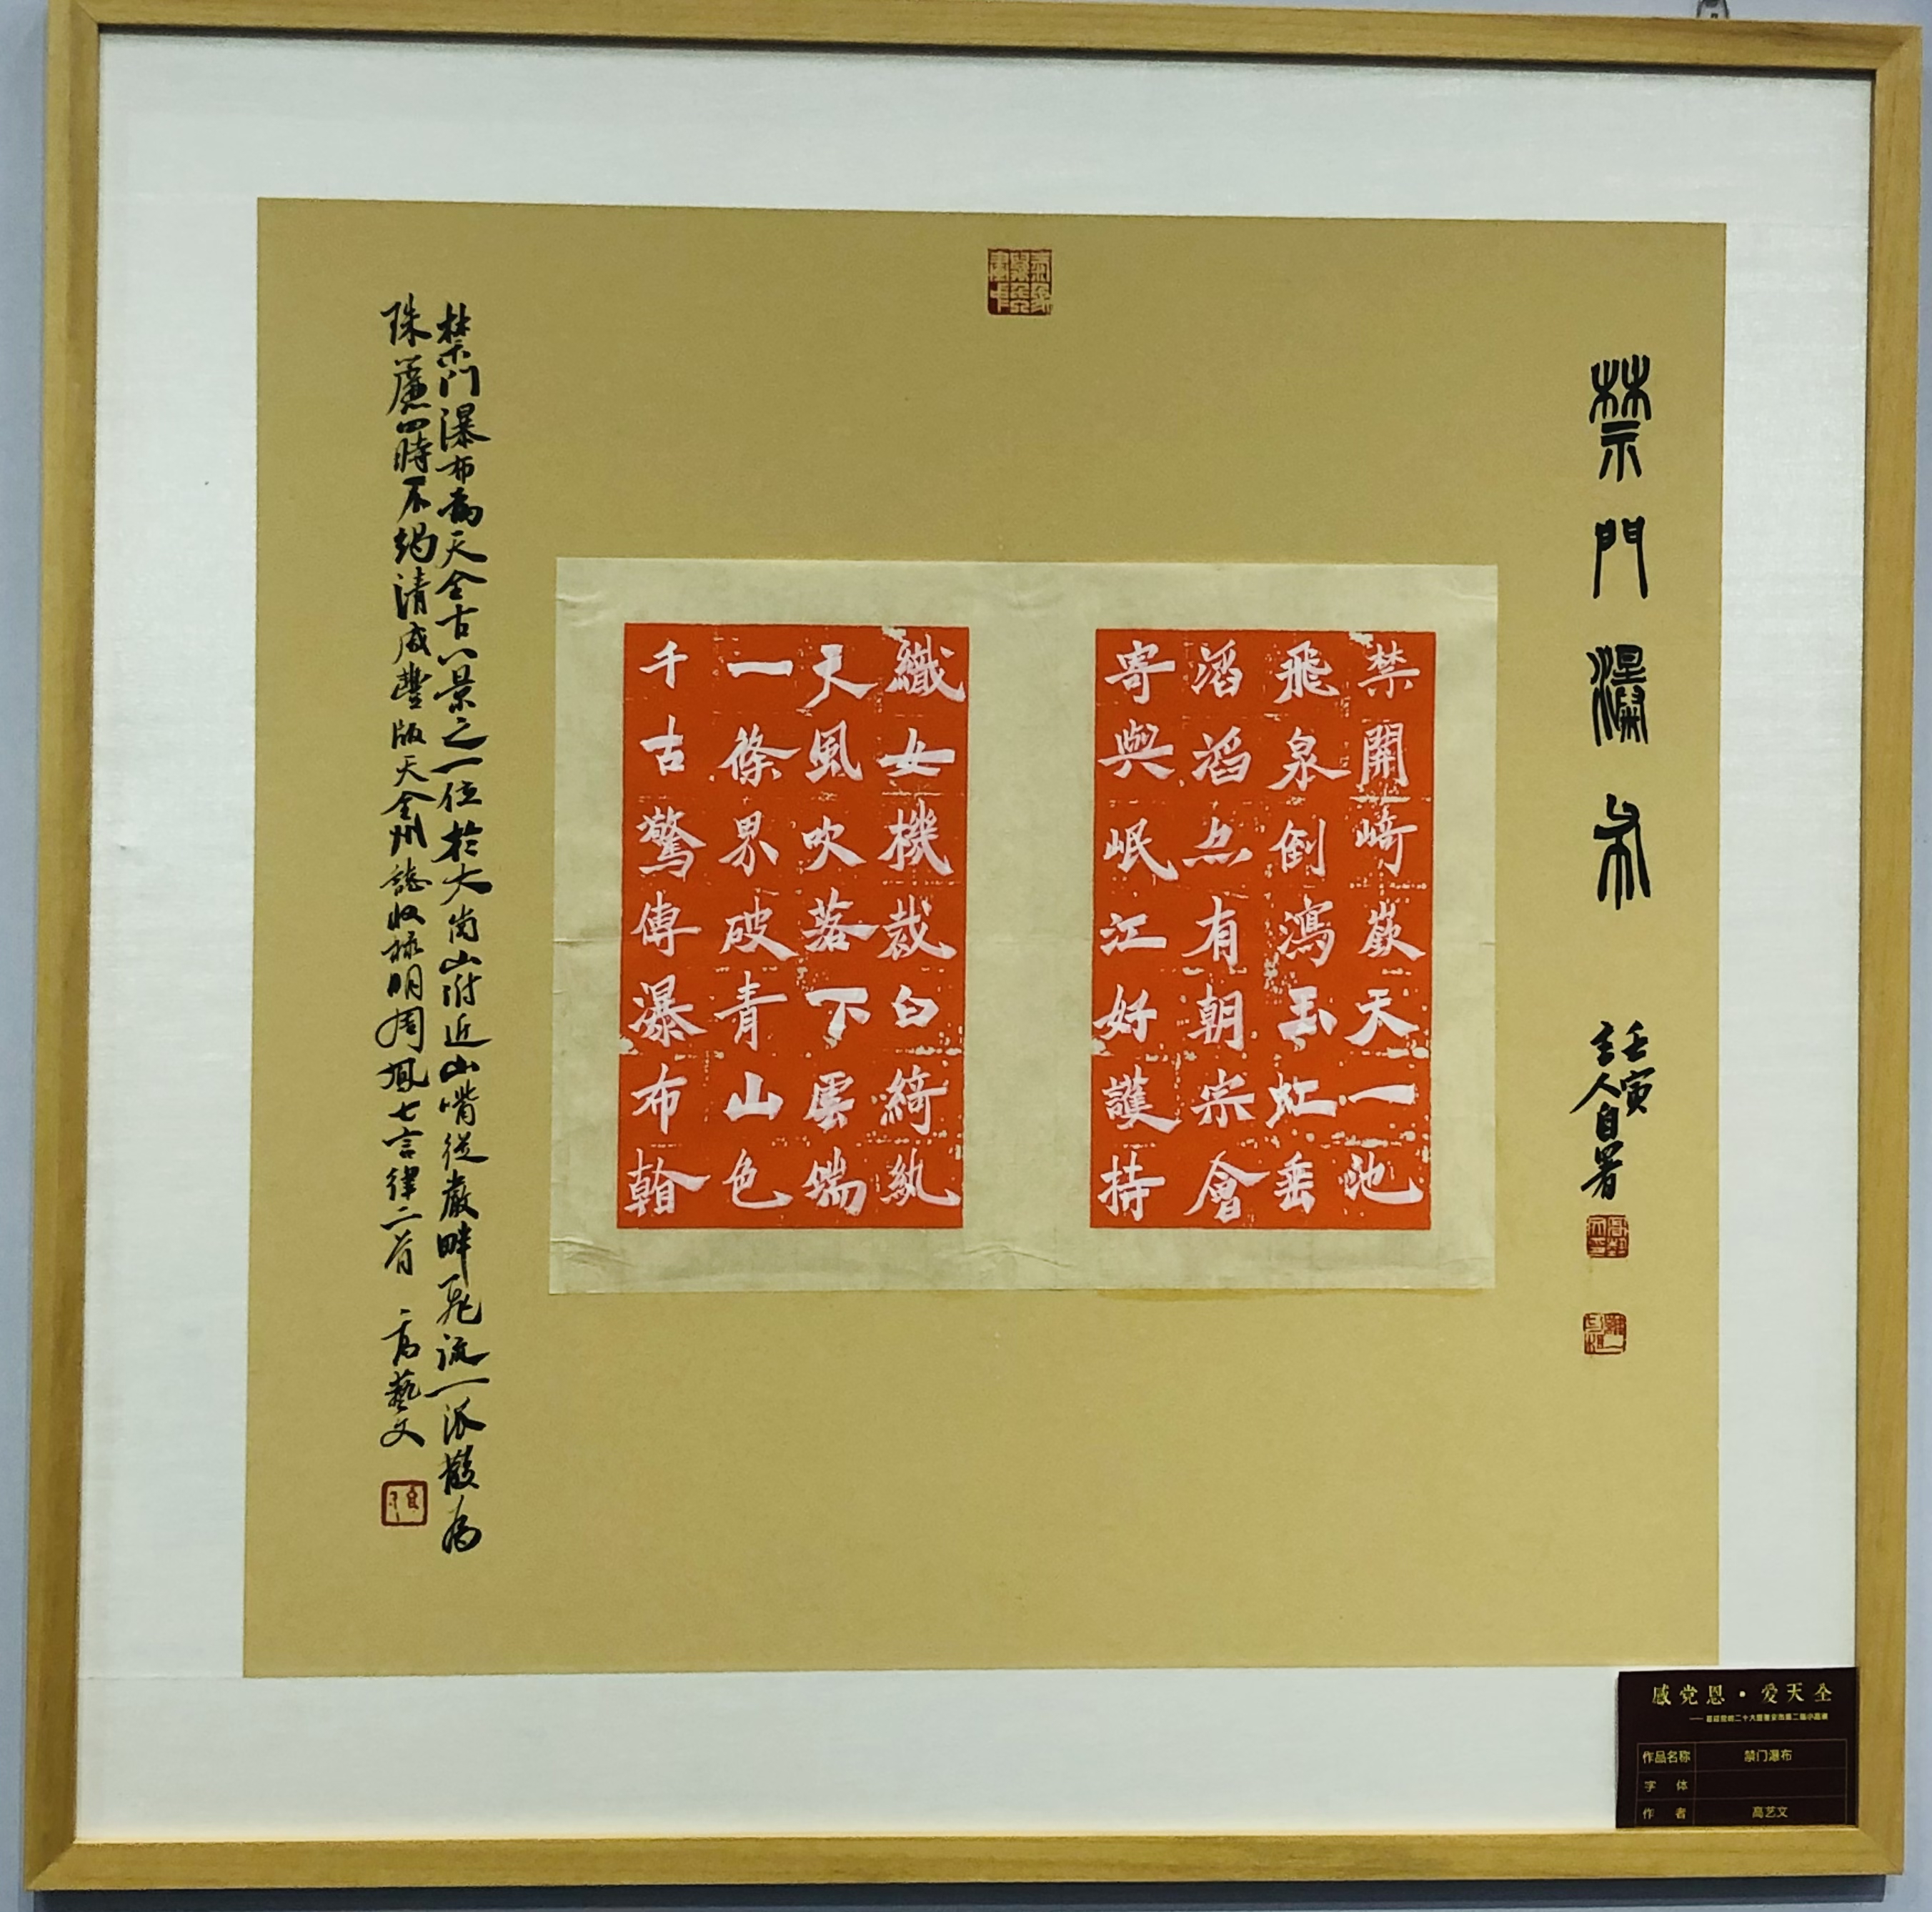 禁門瀑布
壬寅
主人自署
禁開崎嶔天一池
飛泉倒瀉玉虹垂
滔滔点有朝宗會
寄與岷江好護持
織女機裁白綺紈
天風吹落下雲端
一條界破青山色
千古驚傳瀑布翰
禁门瀑布為天全古八景之一位於大崗山附近山嘴從巖畔飛流一派散為
珠簾四時不竭清咸豐版天全州誌收録明周鳳七言律二首 高藝文
感党恩·爱天全
作品名称 禁门瀑布
字体
作者 高艺文